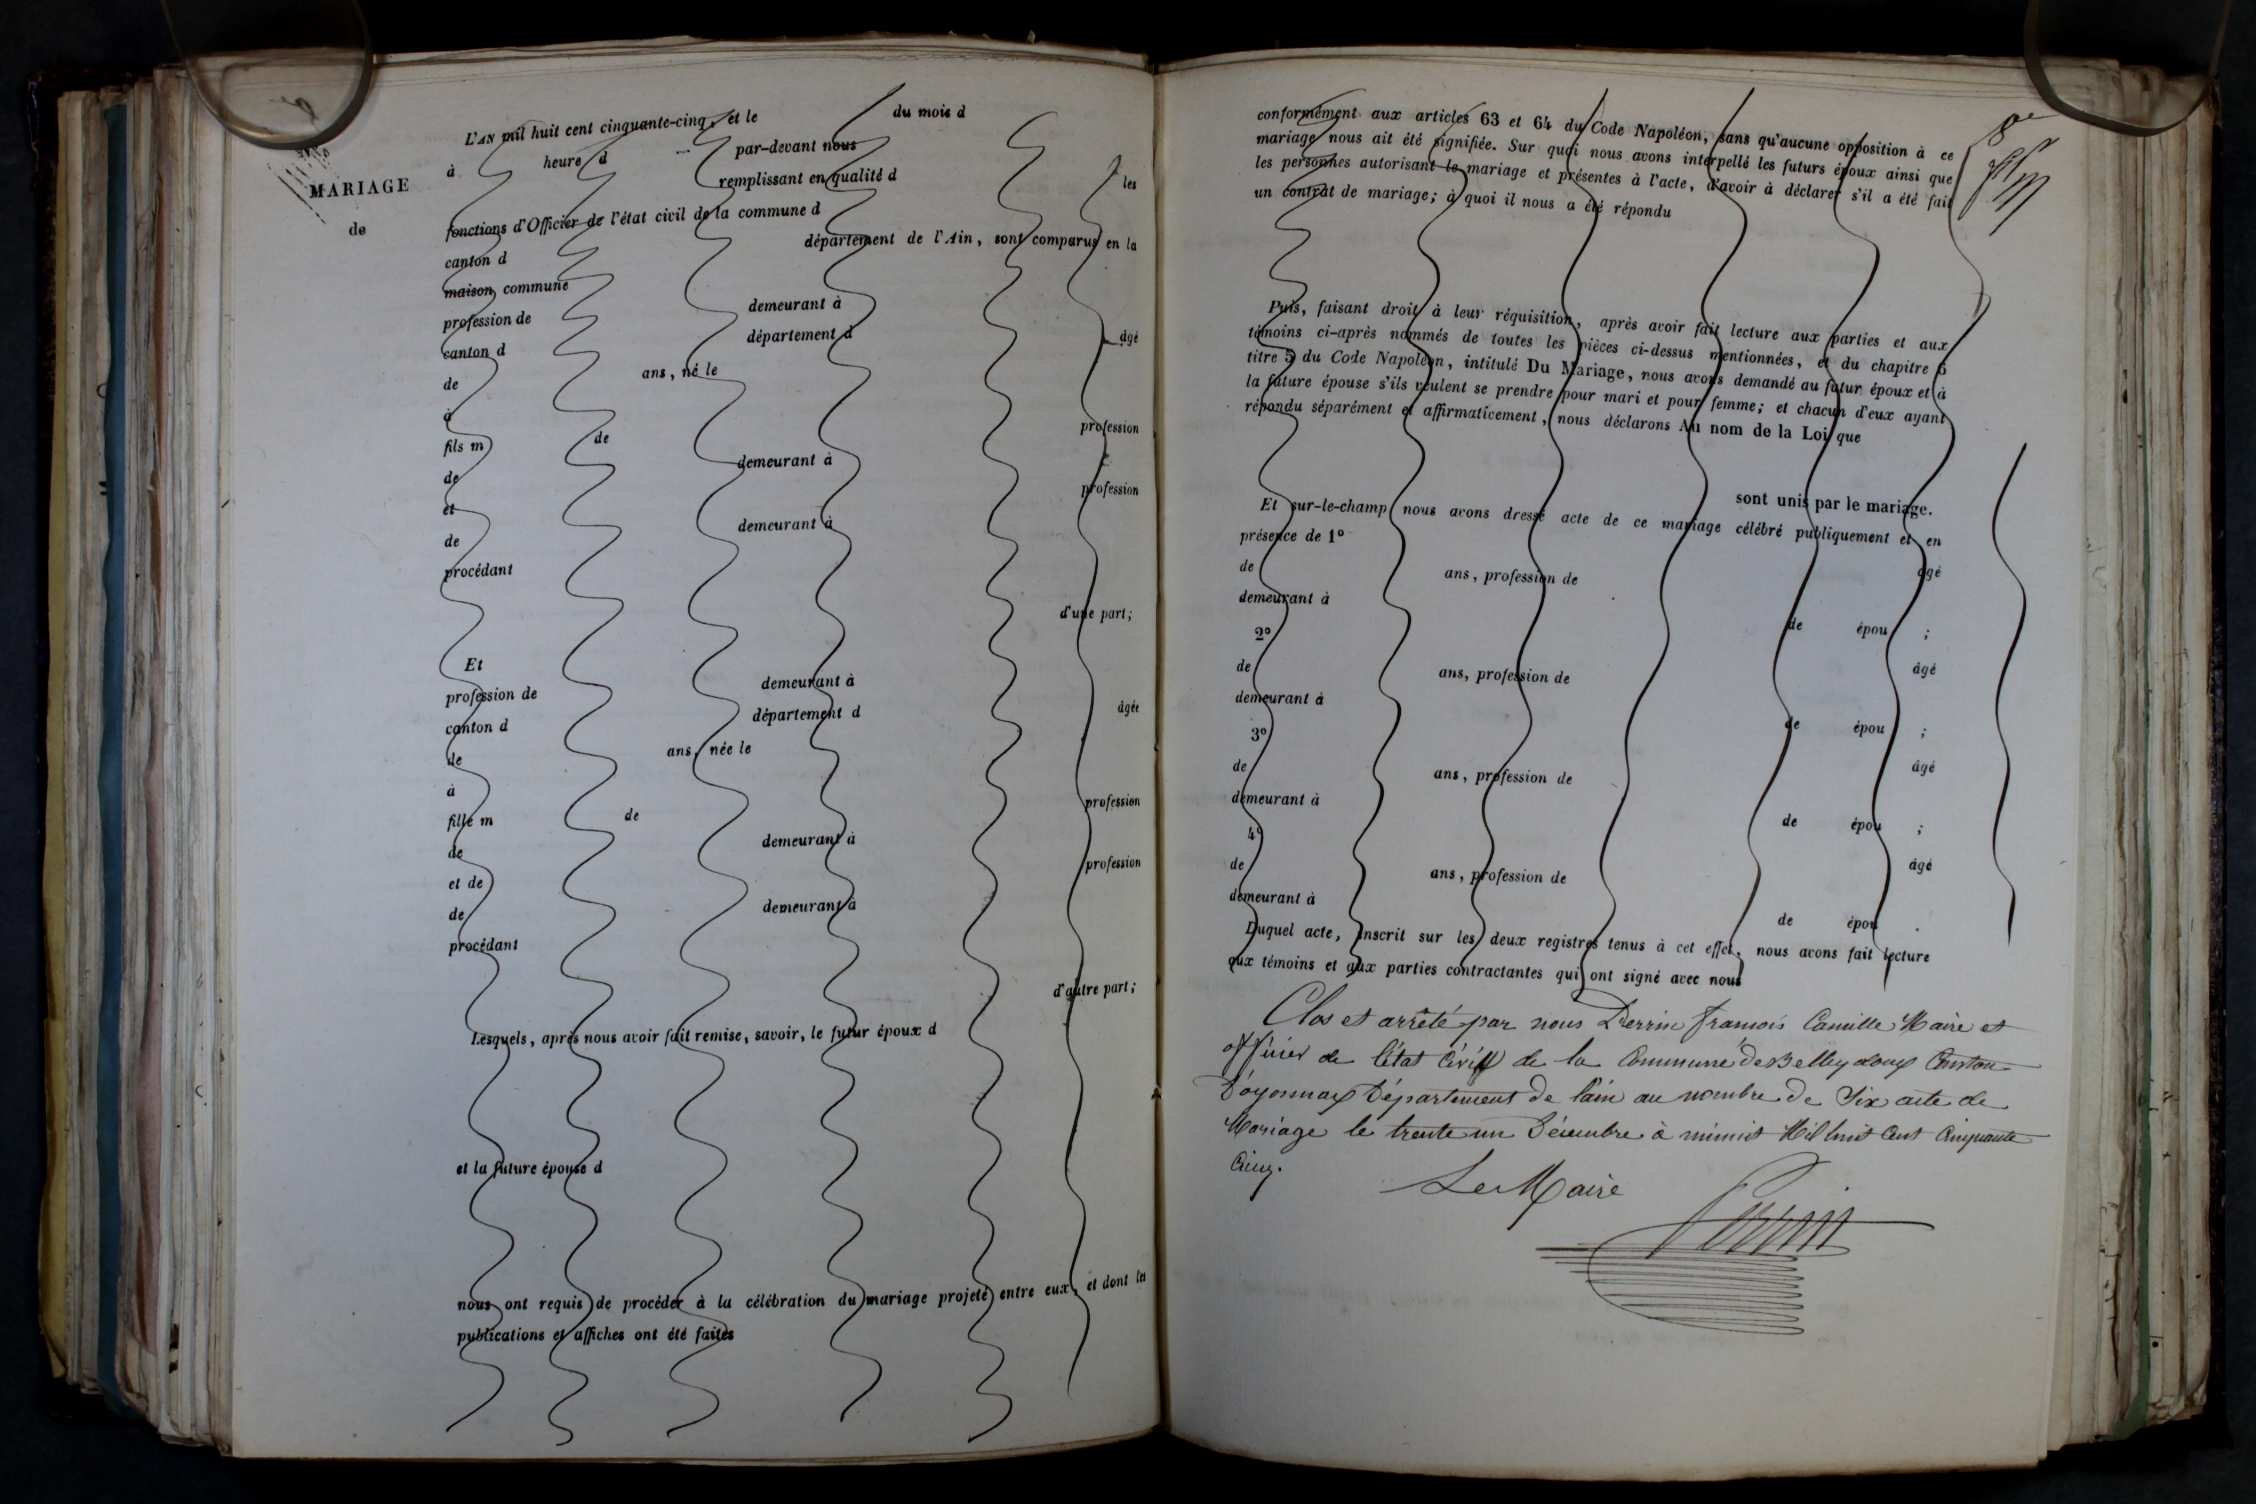 MARIAGE
de
L'AN mil huit cent cinquante-cinq, et le du mois d
à heure d par-devant nous
remplissant en qualité d les
fonctions d'Officier de l'état civil de la commune d
canton d département de l'Ain, sont comparus en la
maison commune
profession de demeurant à
canton d département d âgé
de ans, né le
à
fils m de profession
de demeurant à
et profession
de demeurant à
procédant
d'une part;
Et
profession de demeurant à
canton d département d âgée
de ans, née le
à
fille m de profession
de demeurant à
et de profession
de demeurant à
procédant
d'autre part;
Lesquels, après nous avoir fait remise, savoir, le futur époux d
et la future épouse d
nous ont requis de procéder à la célébration du mariage projeté entre eux, et dont les
publications et affiches ont été faites
8e
conformément aux articles 63 et 64 du Code Napoléon, sans qu'aucune opposition à ce
mariage nous ait été signifiée. Sur quoi nous avons interpellé les futurs époux ainsi que
les personnes autorisant le mariage et présentes à l'acte, d'avoir à déclarer s'il a été fait
un contrat de mariage; à quoi il nous a été répondu
Puis, faisant droit à leur réquisition, après avoir fait lecture aux parties et aux
témoins ci-après nommés de toutes les pièces ci-dessus mentionnées, et du chapitre 6
titre 5 du Code Napoléon, intitulé Du Mariage, nous avons demandé au futur époux et à
la future épouse s'ils veulent se prendre pour mari et pour femme; et chacun d'eux ayant
répondu séparément et affirmativement, nous déclarons Au nom de la Loi que
sont unis par le mariage.
Et sur-le-champ nous avons dressé acte de ce mariage célébré publiquement et en
présence de 1º âgé
de ans, profession de
demeurant à de épou ;
2º âgé
de ans, profession de
demeurant à de épou ;
3º âgé
de ans, profession de
demeurant à de épou ;
4º âgé
de ans, profession de
demeurant à de épou .
Duquel acte, inscrit sur les deux registres tenus à cet effet, nous avons fait lecture
aux témoins et aux parties contractantes qui ont signé avec nous
Clos et arrêté par nous Perrin François Camille Maire et
officier de l'état Civil de la Commune de Belleydoux Canton
D'oyonnax Département de l'ain au nombre de Six acte de
Mariage le trente un Décembre à minuit Mil huit Cent Cinquante
Cinq.
Le Maire
Perrin